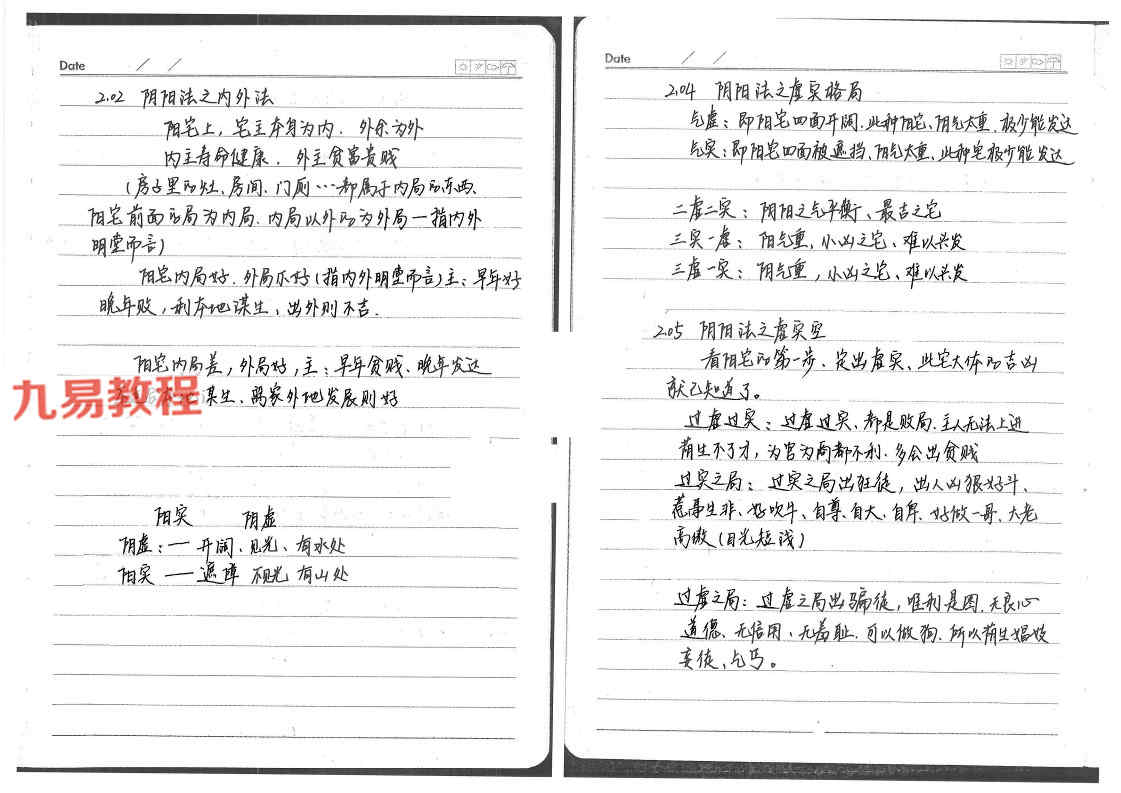 Date / /
2.02 阴阳法之内外法
阳宅上，宅主本身为内．外余为外
内主寿命健康．外主贫富贵贱
（房子里的灶、房间、门厕…都属于内局的东西、
阳宅前面的局为内局．内局以外的为外局—指内外
明堂而言）
阳宅内局好．外局不好（指内外明堂而言）主：早年好
晚年败，利本地谋生、出外则不吉．
阳宅内局差，外局好，主：早年贫贱、晚年发达
九易教程
谋生、离家外地发展则好
阳实 阴虚
阴虚：— 开阔、见光、有水处
阳实 — 遮障 不见光 有山处
Date / /
2.04 阴阳法之虚实格局
气虚：即阳宅四面开阔．此种阳宅、阴气太重．极少能发达
气实：即阳宅四面被遮挡、阳气太重、此种宅极少能发达
二虚二实：阴阳之气平衡、最吉之宅
三实一虚：阳气重，小凶之宅、难以兴发
三虚一实：阴气重，小凶之宅、难以兴发
2.05 阴阳法之虚实空
看阳宅的第一步．定出虚实、此宅大体的吉凶
就已知道了。
过虚过实：过虚过实、都是败局．主人无法上进
荫生不了才，为官为商都不利．多会出贫贱
过实之局：过实之局出狂徒，出人凶狠好斗、
惹事生非、好吹牛、自尊、自大、自卑、好做一哥、大老
高傲（目光短浅）
过虚之局：过虚之局出骗徒，唯利是图．无良心
道德、无信用、无羞耻．可以做狗．所以荫生娼妓
妄徒、乞丐。